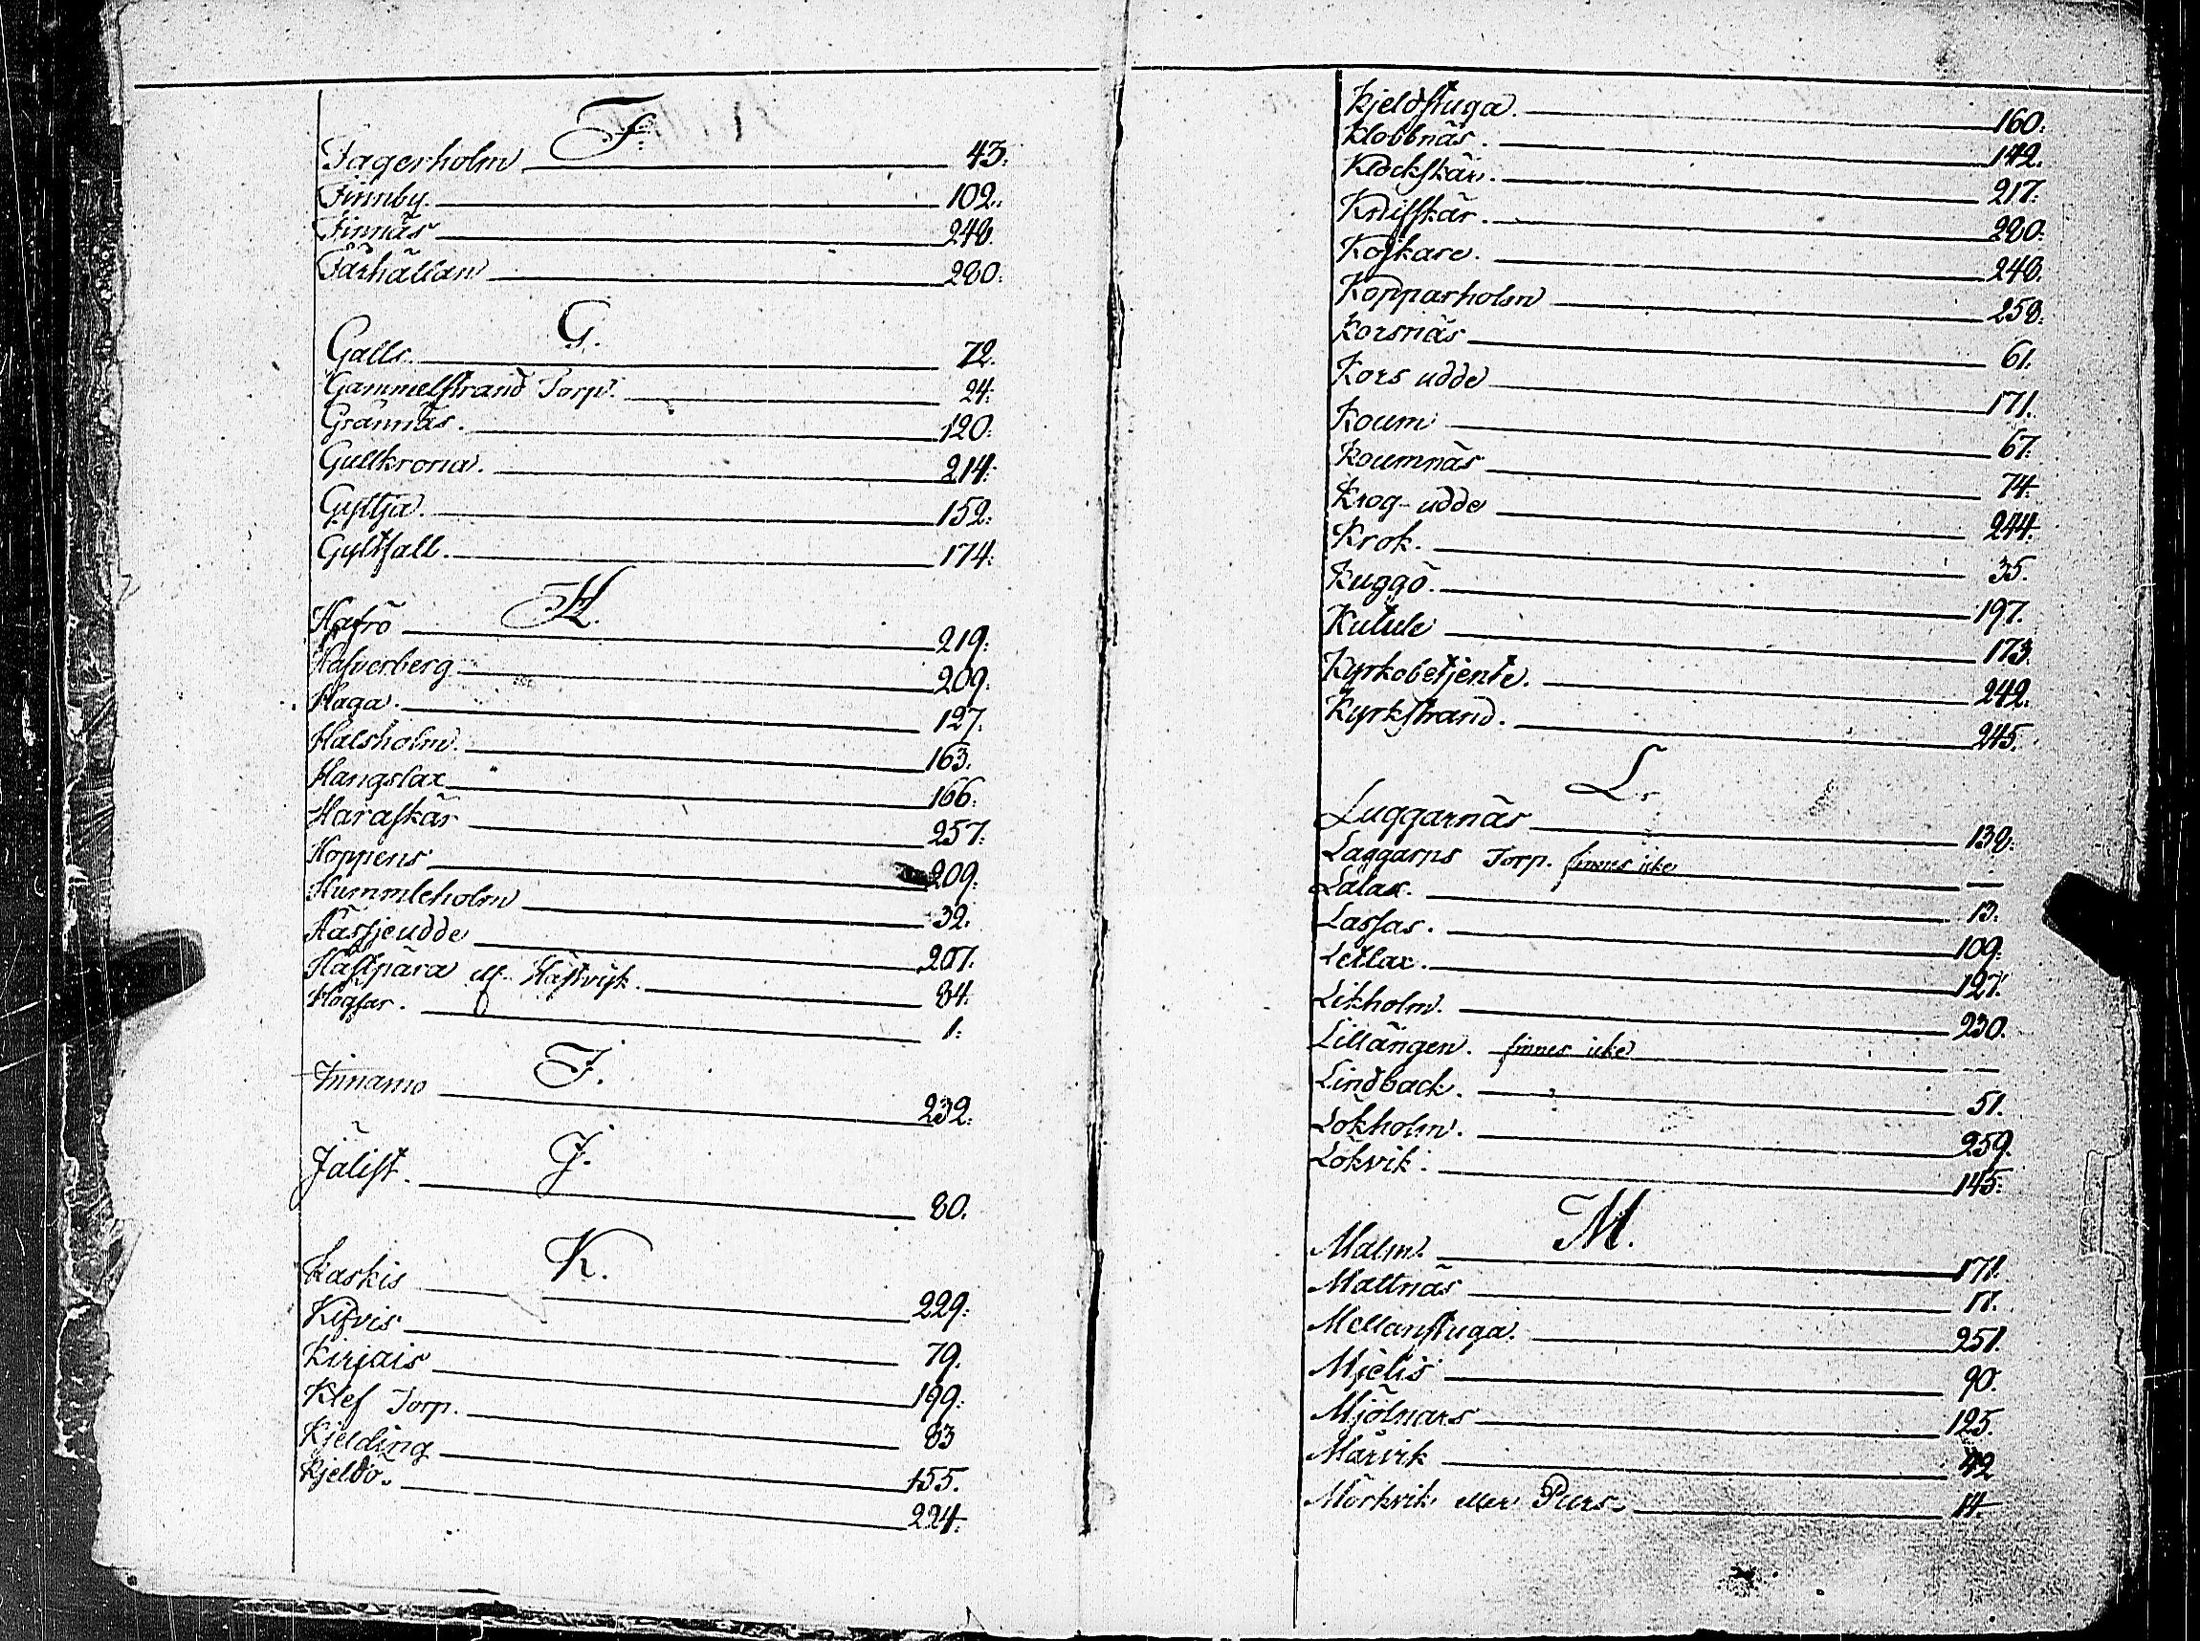 F.
Fagerholm 43.
Finnby. 102.
Finnäs 248.
Fårhällan 280.
G.
Galls 72.
Gammelstrand Torp. 24.
Grännäs. 120.
Gullkrona. 214.
Gyltja. 152.
Gyltfall. 174.
H.
Hafrö 219.
Hafverberg 209.
Haga. 127.
Halsholm. 163.
Hangslax 166.
Haraskär 257.
Hoppens 209.
Hummleholm 32.
Hässjeudde 207.
Hästpära ell. Hästvik. 84.
Högsar. 1.
I.
Innamo 232.
J.
Jälist. 80.
K.
Kaskis 229.
Kifvis 79.
Kirjais 199.
Klef Torp. 83
Kjelding 155.
Kjeldö. 224.
Kjeldstuga. 160.
Klobbnäs. 142.
Klockskär. 217.
Knifskär. 280.
Koskare. 248.
Kopparholm 258.
Korsnäs 61.
Kors udde 171.
Koum 67.
Koumnäs 74.
Krog-udde 244.
Krok. 35.
Kuggö. 197.
Kutule 173.
Kyrkobetjente. 242.
Kyrkstrand. 245.
L.
Luggarnäs 138.
Laggarns Torp. finnes icke —
Lalax. 13.
Lassas. 109.
Letlax. 127.
Likholm. 230.
Lillängen. finnes icke —
Lindback. 51.
Lökholm. 259.
Lökvik. 145.
M.
Malm. 171.
Mattnäs 17.
Mellanstuga. 251.
Mjelis 90.
Mjölnars 125.
Märvik 42
Mörkvik eller Purs. 14.